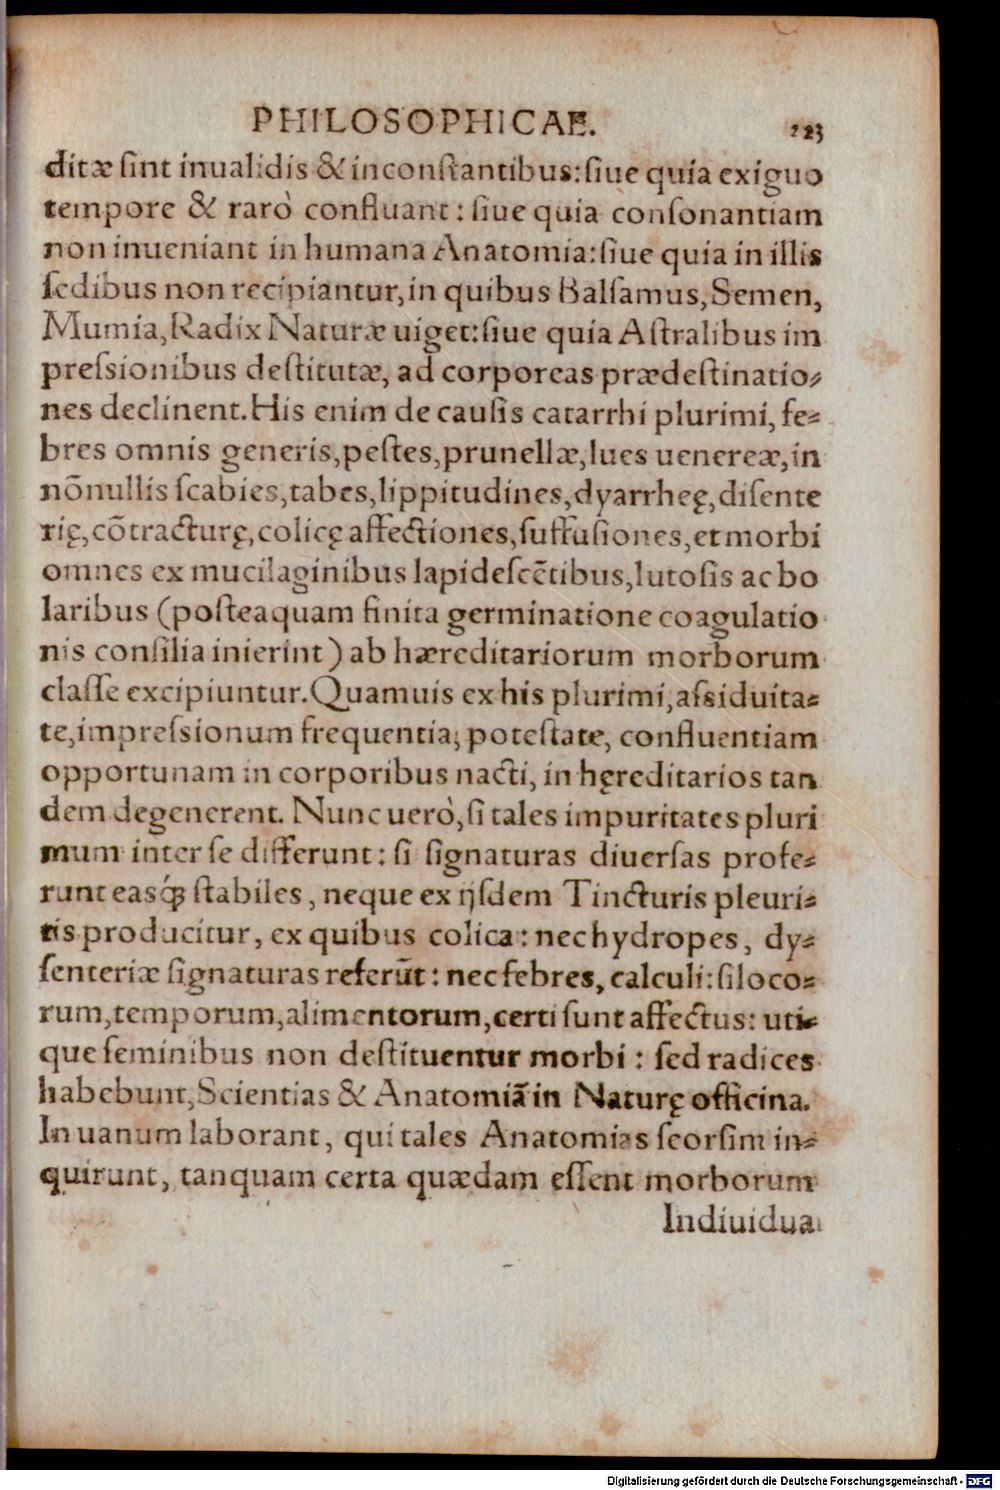 PHILOSOPHICAE. 223
ditæ sint inualidis & inconstantibus: siue quia exiguo
tempore & rarò confluant: siue quia consonantiam
non inueniant in humana Anatomia: siue quia in illis
sedibus non recipiantur, in quibus Balsamus, Semen,
Mumia, Radix Naturæ uiget: siue quia Astralibus im
pressionibus destitutæ, ad corporeas prædestinatio⸗
nes declinent. His enim de causis catarrhi plurimi, fe⸗
bres omnis generis, pestes, prunellæ, lues uenereæ, in
nõnullis scabies, tabes, lippitudines, dyarrheę, disente
rię, cõtracturę, colicę affectiones, suffusiones, et morbi
omnes ex mucilaginibus lapidescẽtibus, lutosis ac bo
laribus (posteaquam finita germinatione coagulatio
nis consilia inierint) ab hæreditariorum morborum
classe excipiuntur. Quamuis ex his plurimi, assiduita⸗
te, impressionum frequentia, potestate, confluentiam
opportunam in corporibus nacti, in hęreditarios tan
dem degenerent. Nunc uerò, si tales impuritates pluri
mum inter se differunt: si signaturas diuersas profe⸗
runt easq́; stabiles, neque ex ijsdem Tincturis pleuri⸗
tis producitur, ex quibus colica: nec hydropes, dy⸗
senteriæ signaturas referũt: nec febres, calculi: si loco⸗
rum, temporum, alimentorum, certi sunt affectus: uti⸗
que seminibus non destituentur morbi: sed radices
habebunt, Scientias & Anatomiã in Naturę officina.
In uanum laborant, qui tales Anatomias seorsim in⸗
quirunt, tanquam certa quædam essent morborum
Indiuidua
Digitalisierung gefördert durch die Deutsche Forschungsgemeinschaft - DFG